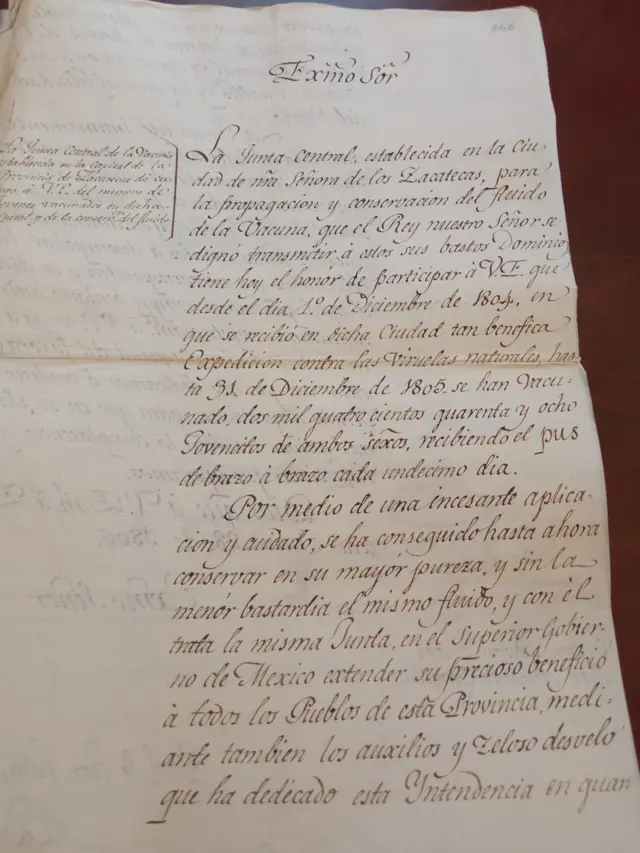 246
Exm̃o Sõr
La Junta Central de la Vacuna
establecida en la capital de la
Provincia de Zacatecas dá cu
á V.E. del número de
Jovenes vacunados en dicha
Capital y de la conservn. del fluido
La Junta Central, establecida en la Ciu-
dad de nr̃a Señora de los Zacatecas, para
la propagacion y conservacion del fluido
de la Vacuna, que el Rey nuestro Señor se
dignó transmitir á estos sus bastos Dominio
tiene hoy el honór de participar á V.E. que
desde el dia 1.º de Diciembre de 1804, en
que se recibió en dicha Ciudad tan benefica
Expedicion contra las Viruelas naturales, has
ta 31 de Diciembre de 1805 se han Vacu-
nado, dos mil quatro cientos quarenta y ocho
Jovencitos de ambos séxos, recibiendo el pus
de brazo á brazo cada undecimo dia.
Por medio de una incesante aplica-
cion y cuidado, se ha conseguido hasta ahora
conservar en su mayór pureza, y sin la
menór bastardia el mismo fluido, y con él
trata la misma Junta, en el Superior Gobier-
no de Mexico extender su precioso beneficio
á todos los Pueblos de esta Provincia, medi-
ante tambien los auxilios y zeloso desvelo
que ha dedecado esta Yntendencia en quan